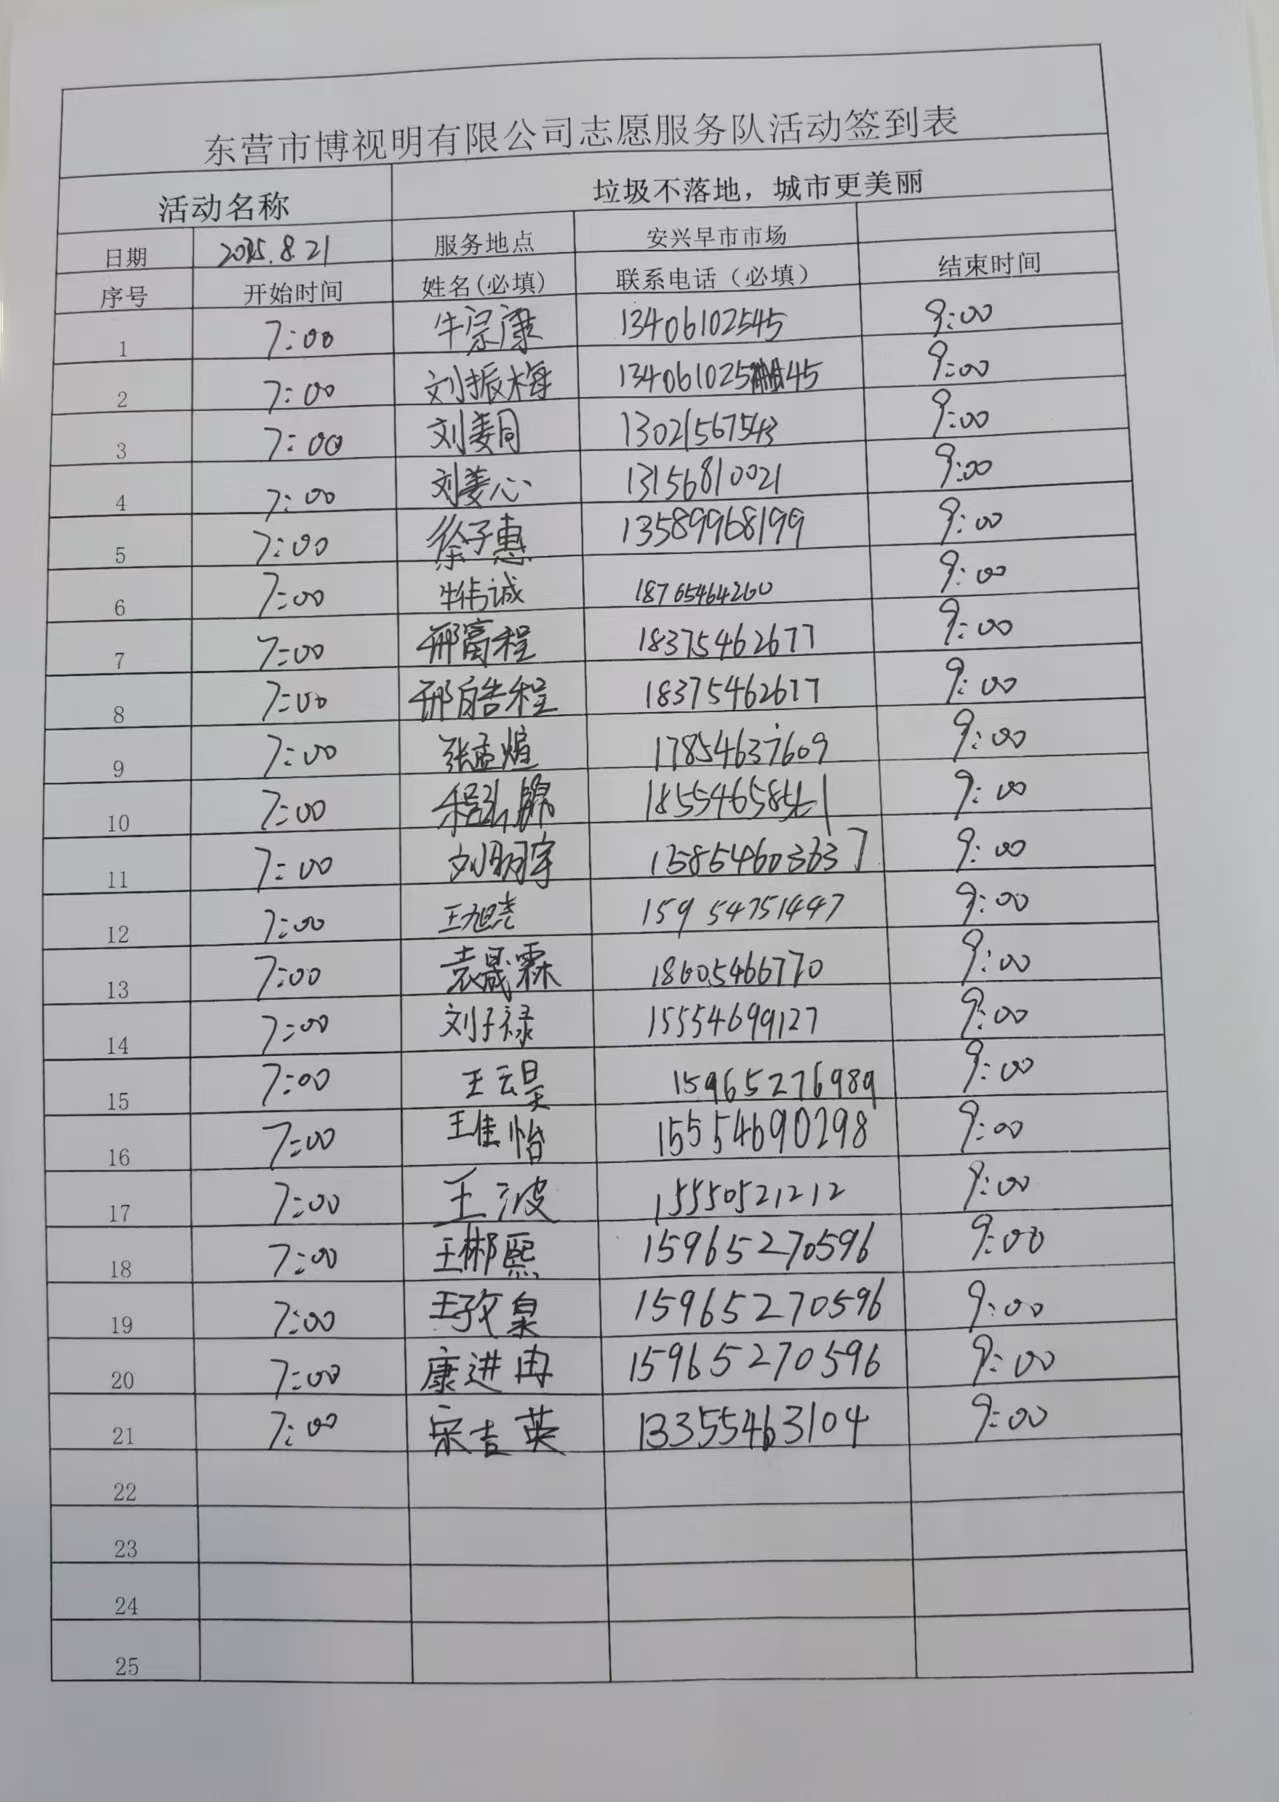 东营市博视明有限公司志愿服务队活动签到表
活动名称 垃圾不落地，城市更美丽
日期 2025.8.21 服务地点 安兴早市市场
序号 开始时间 姓名(必填) 联系电话（必填） 结束时间
1 7:00 牛宗康 13406102545 9:00
2 7:00 刘振梅 13406102545 9:00
3 7:00 刘姜同 13021567543 9:00
4 7:00 刘姜心 13156810021 9:00
5 7:00 徐子惠 13589968199 9:00
6 7:00 牛伟诚 18765464260 9:00
7 7:00 邢富程 18375462677 9:00
8 7:00 邢皓程 18375462677 9:00
9 7:00 张孟煊 17854637609 9:00
10 7:00 9:00
11 7:00 15854603637 9:00
12 7:00 王旭尧 15954751447 9:00
13 7:00 袁晟霖 18605466770 9:00
14 7:00 刘子禄 15554699127 9:00
15 7:00 王云昊 15965276989 9:00
16 7:00 王佳怡 15554690298 9:00
17 7:00 王波 15550521212 9:00
18 7:00 王郴熙 15965270596 9:00
19 7:00 王孜泉 15965270596 9:00
20 7:00 康进冉 15965270596 9:00
21 7:00 宋吉英 13355463104 9:00
22
23
24
25